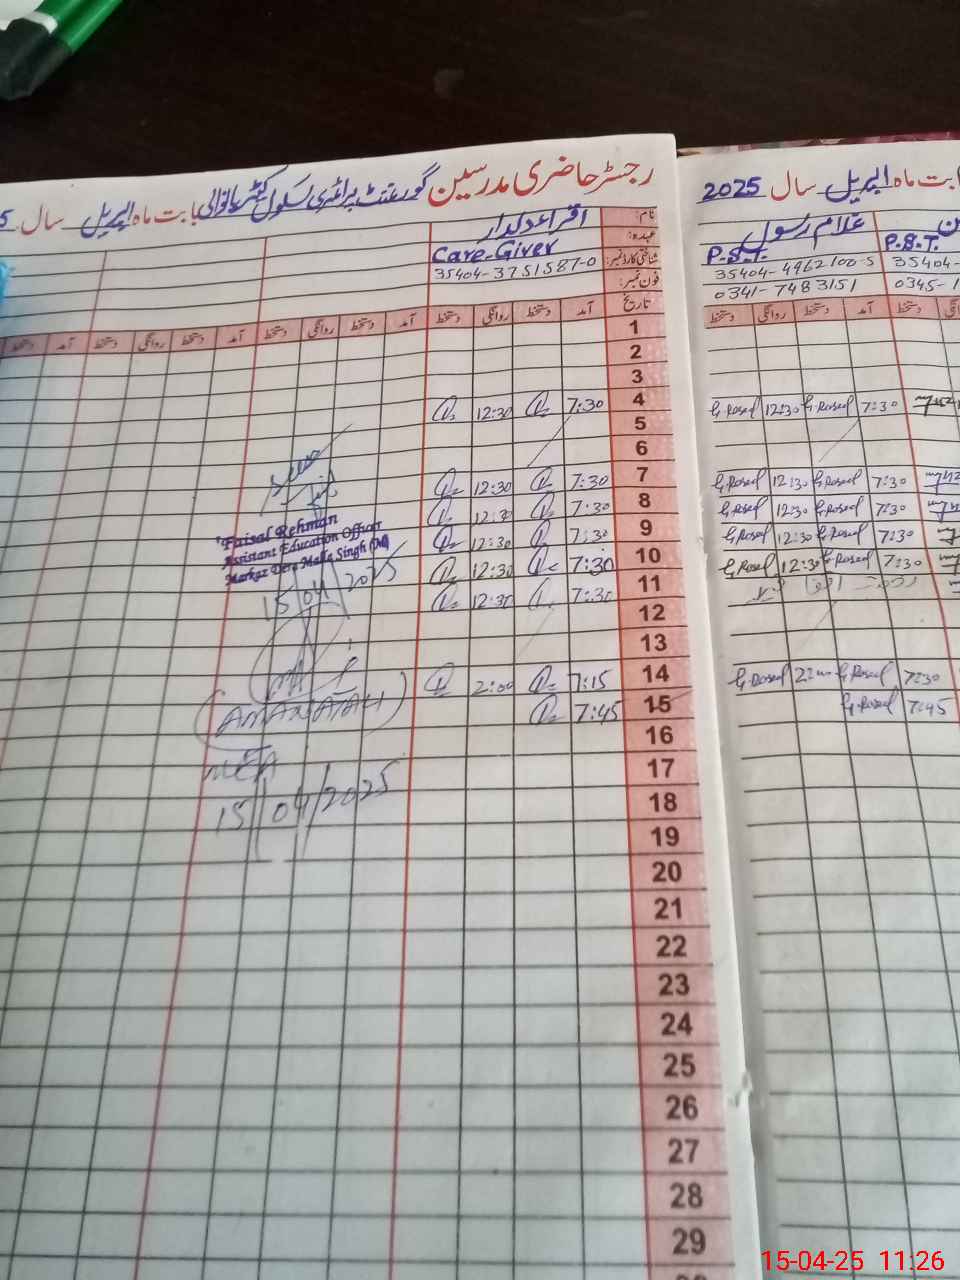 رجسٹر حاضری مدرسین گورنمنٹ پرائمری سکول بابت ماہ اپریل سال
نام:
اقراء دلدار
عہدہ:
Care-Giver
شناختی کارڈ نمبر:
35404-3751587-0
فون نمبر:
تاریخ آمد دستخط روانگی دستخط آمد دستخط روانگی دستخط آمد دستخط روانگی دستخط آمد دستخط
1
2
3
4 7:30 12:30
5
6
7 7:30 12:30
8 7:30 12:30
9 7:30 12:30
10 7:30 12:30
11 7:30 12:30
12
13
14 7:15 2:00
15 7:45
16
17
18
19
20
21
22
23
24
25
26
27
28
29
Faisal Rehman
Assistant Education Officer
Markaz Dera Malla Singh (M)
15/04/2025
MEA
15/04/2025
بابت ماہ اپریل سال 2025
غلام رسول
P.S.T. P.S.T.
35404-4962100-5 35404-
0341-7483151 0345-1
دستخط آمد دستخط روانگی دستخط
7:30 G.Rasool 12:30 G.Rasool
7:30 G.Rasool 12:30 G.Rasool
7:30 G.Rasool 12:30 G.Rasool
7:30 G.Rasool 12:30 G.Rasool
7:30 G.Rasool 12:30 G.Rasool
7:30 G.Rasool G.Rasool
7:45 G.Rasool
15-04-25 11:26